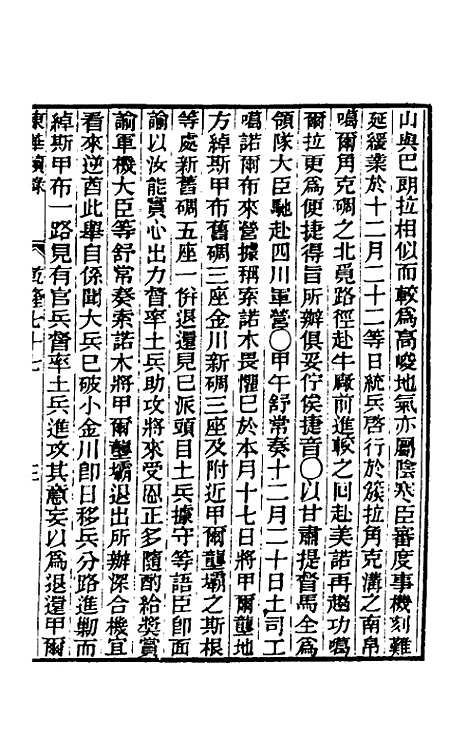 山與巴朗拉相似而較為高峻地氣亦屬陰寒臣審度事機刻難
延緩業於十二月二十二等日統兵啓行於簇拉角克溝之南帛
噶爾角克碉之北覓路徑赴牛廠前進較之回赴美諾再趨功噶
爾拉更為便捷得旨所辦俱妥佇俟捷音〇以甘肅提督馬全為
領隊大臣馳赴四川軍營〇甲午舒常奏十二月二十日土司工
噶諾爾布來營據稱索諾木畏懼已於本月十七日將甲爾壟地
方綽斯甲布舊碉三座金川新碉三座及附近甲爾壟壩之斯根
等處新舊碉五座一併退還見已派頭目土兵據守等語臣卽面
諭以汝能實心出力督率土兵助攻將來受恩正多隨酌給獎賞
諭軍機大臣等舒常奏索諾木將甲爾壟壩退出所辦深合機宜
看來逆酋此舉自係聞大兵已破小金川卽日移兵分路進勦而
綽斯甲布一路見有官兵督率土兵進攻其意妄以為退還甲爾
東華續錄 乾隆七十七 三